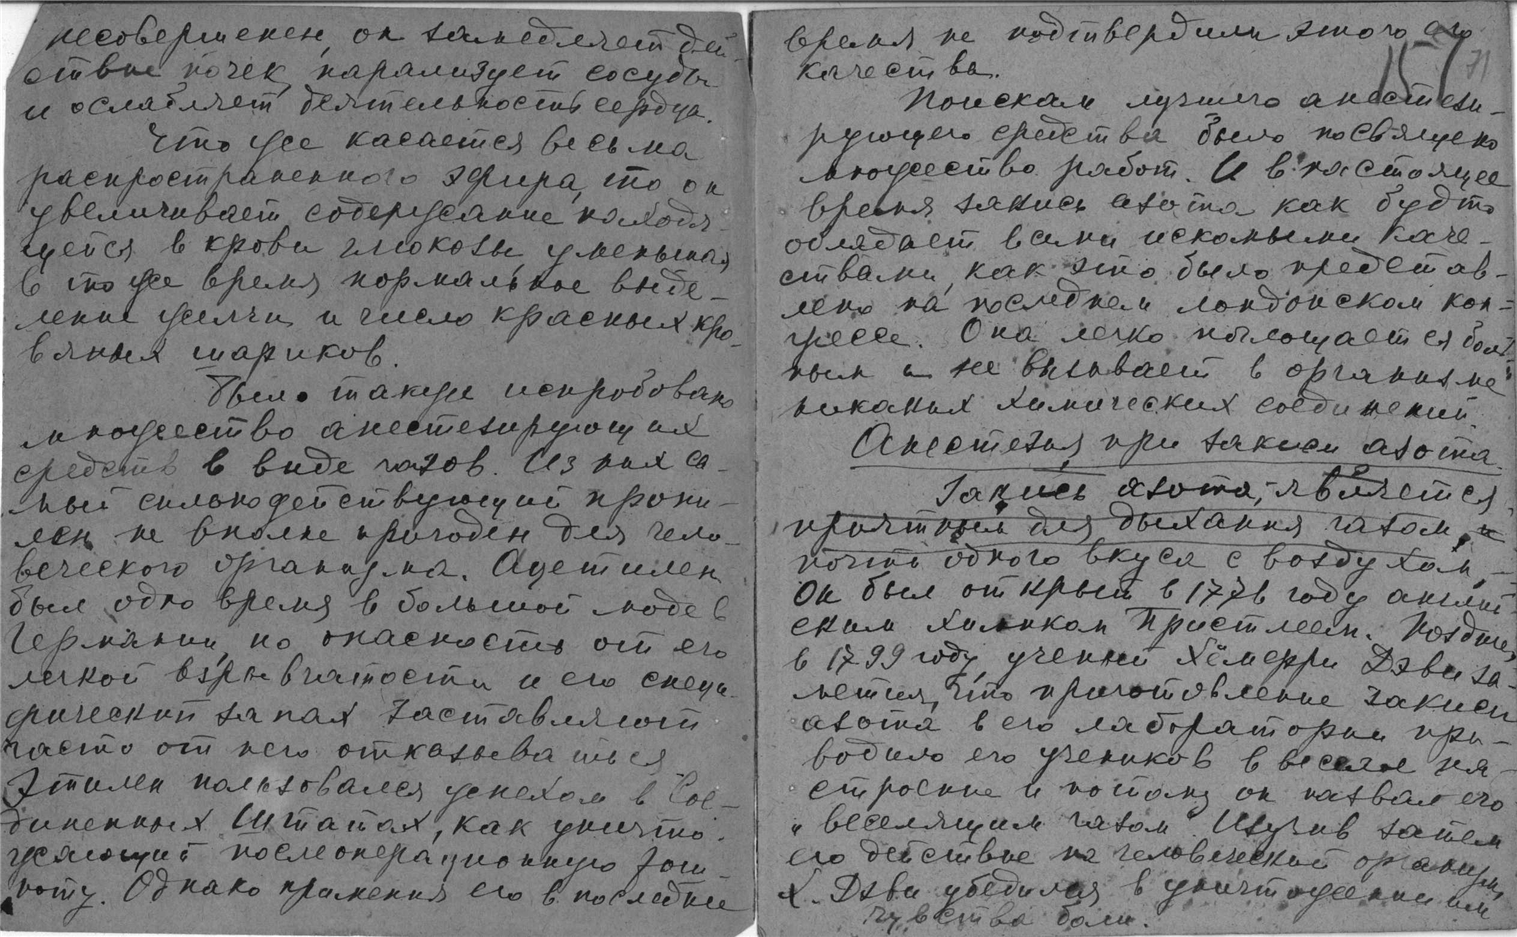 несовершенен, он замедляет дей-
ствие почек, парализует сосуды
и ослабляет деятельность сердца.
Что же касается весьма
распространенного эфира, то он
увеличивает содержание находя-
щейся в крови глюкозы, уменьшая
в то же время нормальное выде-
ление желчи и число красных кро-
вяных шариков.
Было также испробовано
множество анестезирующих
средств в виде газов. Из них са-
мый сильнодействующий пропи-
лен не вполне пригоден для чело-
веческого организма. Ацетилен
был одно время в большой моде в
Германии, но опасность от его
легкой взрывчатости и его специ-
фический запах заставляют
часто от него отказываться
Этилен пользовался успехом в Сое-
диненных Штатах, как уничто-
жающий послеоперационную тош-
ноту. Однако применения его в последнее
время не подтвердили этого его
качества.
157
71
Поискам лучшего анестези-
рующего средства было посвящено
множество работ. И в настоящее
время закись азота как будто
обладает всеми искомыми каче-
ствами, как это было представ-
лено на последнем лондонском кон-
грессе. Она легко поглощается боль-
ным и не вызывает в организме
никаких химических соединений.
Анестезия при закиси азота.
Закись азота, является
приятным для дыхания газом, и
почти одного вкуса с воздухом,
Он был открыт в 1776 году англий-
ским химиком Пристлеем. Позднее,
в 1799 году, ученый Хёмфри Дэви за-
метил, что приготовление закиси
азота в его лаборатории при-
водило его учеников в веселое на-
строение и потому он назвал его
"веселящим газом". Изучив затем
его действие на человеческий организм,
Х. Дэви убедился в уничтожении им
чувства боли.